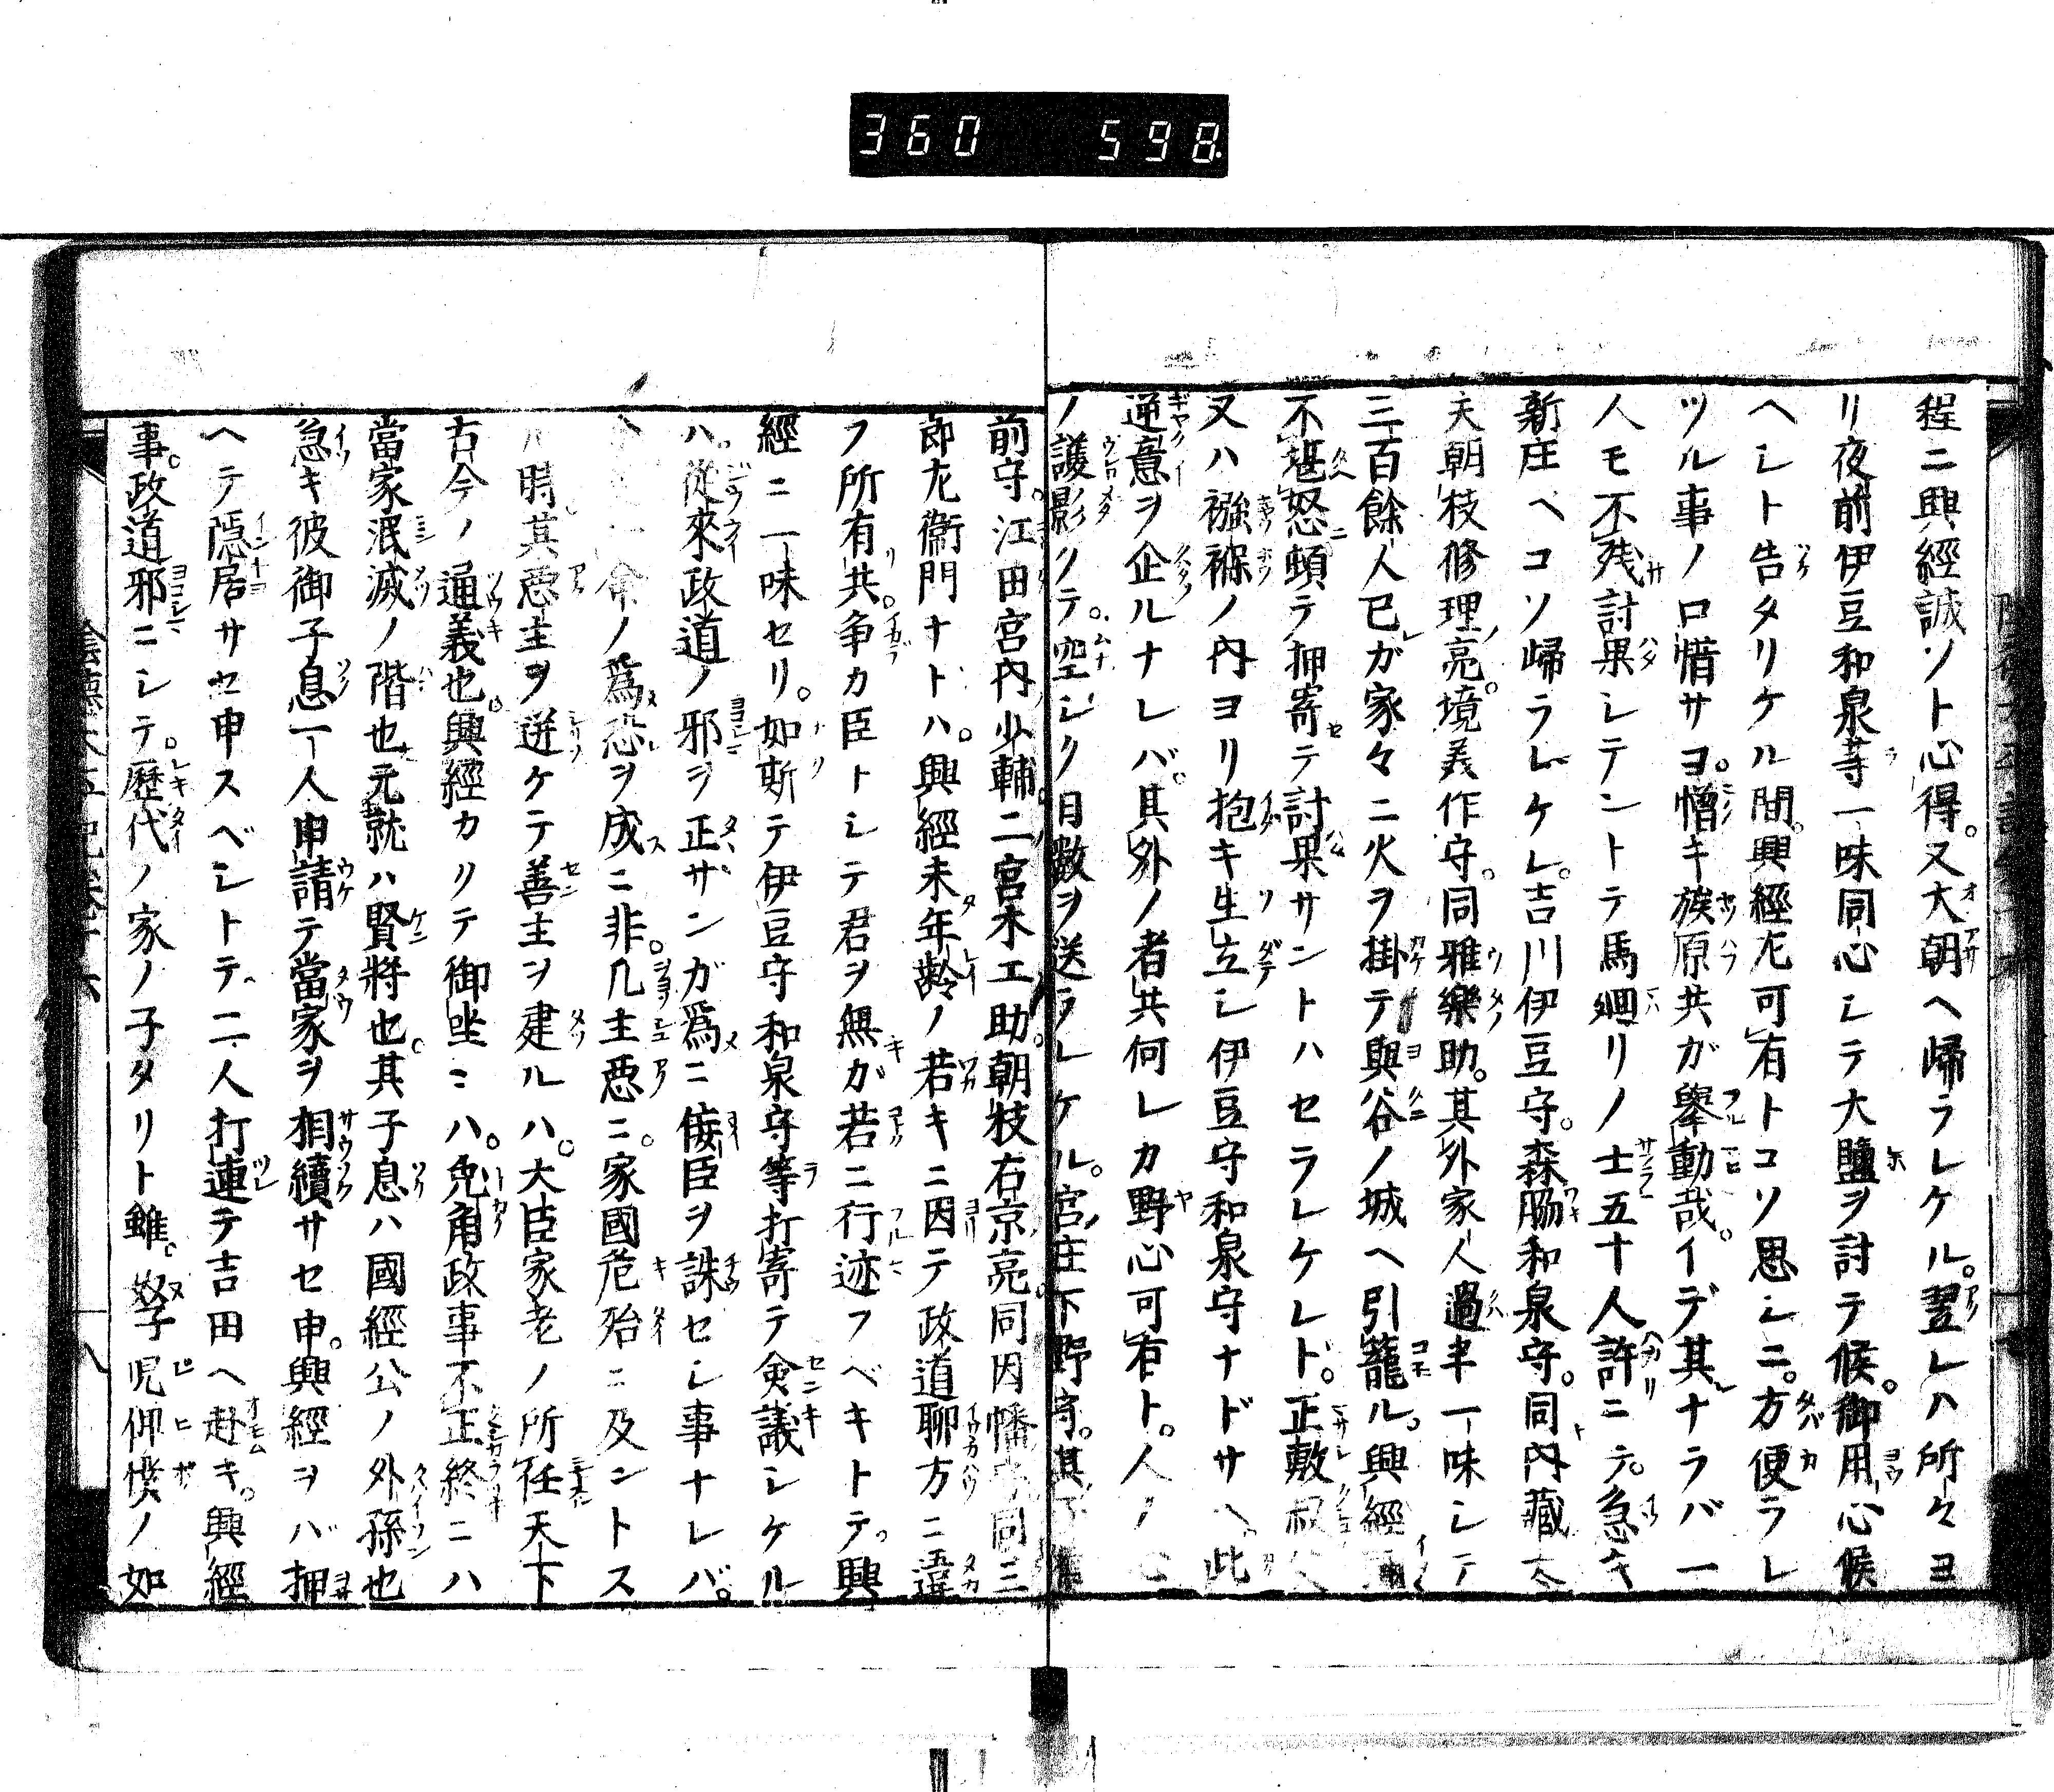 360 598
程ニ興經誠ソト心得。又大朝ヘ歸ラレケル。翌レハ所々ヨ
リ夜前伊豆和泉等一味同心シテ大鹽ヲ討テ候。御用心候
ヘシト告タリケル間。興經尤可有トコソ思シニ。方便ラレ
ツル事ノ口惜サヨ。憎キ族原共ガ舉動哉。イデ其ナラバ一
人モ不残討果シテントテ馬廻リノ士五十人許ニテ。急キ
新庄ヘコソ歸ラレケレ。吉川伊豆守。森脇和泉守。同内藏太
夫朝枝修理亮。境美作守。同雅樂助。其外家人過半一味シテ
三百餘人已ガ家々ニ火ヲ掛テ與谷ノ城ヘ引籠ル。興經
不堪怒頓テ押寄テ討果サントハセラレケレド。正敷叔父
又ハ襁褓ノ内ヨリ抱キ生立シ伊豆守和泉守ナドサヘ此
逆意ヲ企ルナレバ。其外ノ者共何レカ野心可有ト。人ノ心
ノ護影クテ。空シク日数ヲ送ラレケル。宮庄下野守。其
前守。江田宮内少輔。二宮木工助。朝枝右京亮。同因幡守同三
郎左衞門ナトハ。興經未年齢ノ若キニ因テ政道聊方ニ違
フ所有共。争カ臣トシテ君ヲ無ガ若ニ行迹フベキトテ。興
經ニ一味セリ。如斯テ伊豆守和泉守等打寄テ僉議シケル
ハ。從來政道ノ邪ヲ正サンガ爲ニ倭臣ヲ誅セシ事ナレバ。
命ノ爲恐ヲ成ニ非。凡主惡ニ。家國危殆ニ及ントス
ル時其惡主ヲ迸ケテ善主ヲ建ルハ。大臣家老ノ所任天下
古今ノ通義也。興經カリテ御坐ニハ。兎角政事不正終ニハ
當家泯滅ノ階也元就ハ賢將也。其子息ハ國經公ノ外孫也
急キ彼御子息一人申請テ當家ヲ相續サセ申。興經ヲバ押
ヘテ隠居サセ申スベシトテ二人打連テ吉田ヘ赴キ。興經
事。政道邪ニシテ。歴代ノ家ノ子タリト雖。孥子児仰憤ノ如
八